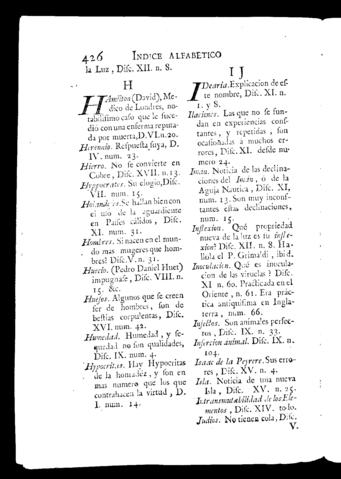 426 INDICE ALFABETICO
la Luz, Disc. XII. n. 8.
H
HAmilton (David), Me-
dico de Londres, no-
tabilissimo caso que le suce-
dió con una enferma reputa-
da por muerta, D. VI. n. 20.
Herencio. Respuesta suya, D.
IV. num. 23.
Hierro. No se convierte en
Cobre, Disc. XVII. n. 13.
Hypocrates. Su elogio, Disc.
VII. num. 15.
Holandeses. Se hallan bien con
el uso de la aguardiente
en Paises calidos, Disc.
XI. num. 31.
Hombres. Si nacen en el mun-
do mas mugeres que hom-
bres? Disc. V. n. 31.
Huecio. (Pedro Daniel Huet)
impugnase, Disc. VIII. n.
15. &c.
Huejos. Algunos que se creen
ser de hombres, son de
bestias corpulentas, Disc.
XVI. num. 42.
Humedad. Humedad, y se-
quedad no son qualidades,
Disc. IX. num. 4.
Hypocritas. Hay Hypocritas
de la honradez, y son en
mas numero que los que
contrahacen la virtud, D.
I. num. 14.
I J
IDearia. Explicacion de es-
te nombre, Disc. XI. n.
1. y 8.
Ilaciones. Las que no se fun-
dan en experiencias cons-
tantes, y repetidas, son
ocasionadas a muchos er-
rores, Disc. XI. desde nu-
mero 24.
Imán. Noticia de las declina-
ciones del Imán, ó de la
Aguja Nautica, Disc. XI.
num. 13. Son muy incons-
tantes estas declinaciones,
num. 15.
Inflexion. Qué propriedad
nueva de la luz es su infle-
xion? Disc. XII. n. 8. Ha-
llola el P. Grimaldi, ibid.
Inoculacion. Qué es inocula-
cion de las viruelas? Disc.
XI. n. 60. Practicada en el
Oriente, n. 61. Era prác-
tica antiquisima en Ingla-
terra, num. 66.
Insectos. Son animales perfec-
tos, Disc. IX. n. 33.
Insercion animal. Disc. IX. n.
104.
Isaac de la Peyrere. Sus erro-
res, Disc. XV. n. 4.
Isla. Noticia de una nueva
Isla, Disc. XV. n. 25.
Intransmutabilidad de los Ele-
mentos, Disc. XIV. todo.
Judios. No tienen cola, Disc.
V.